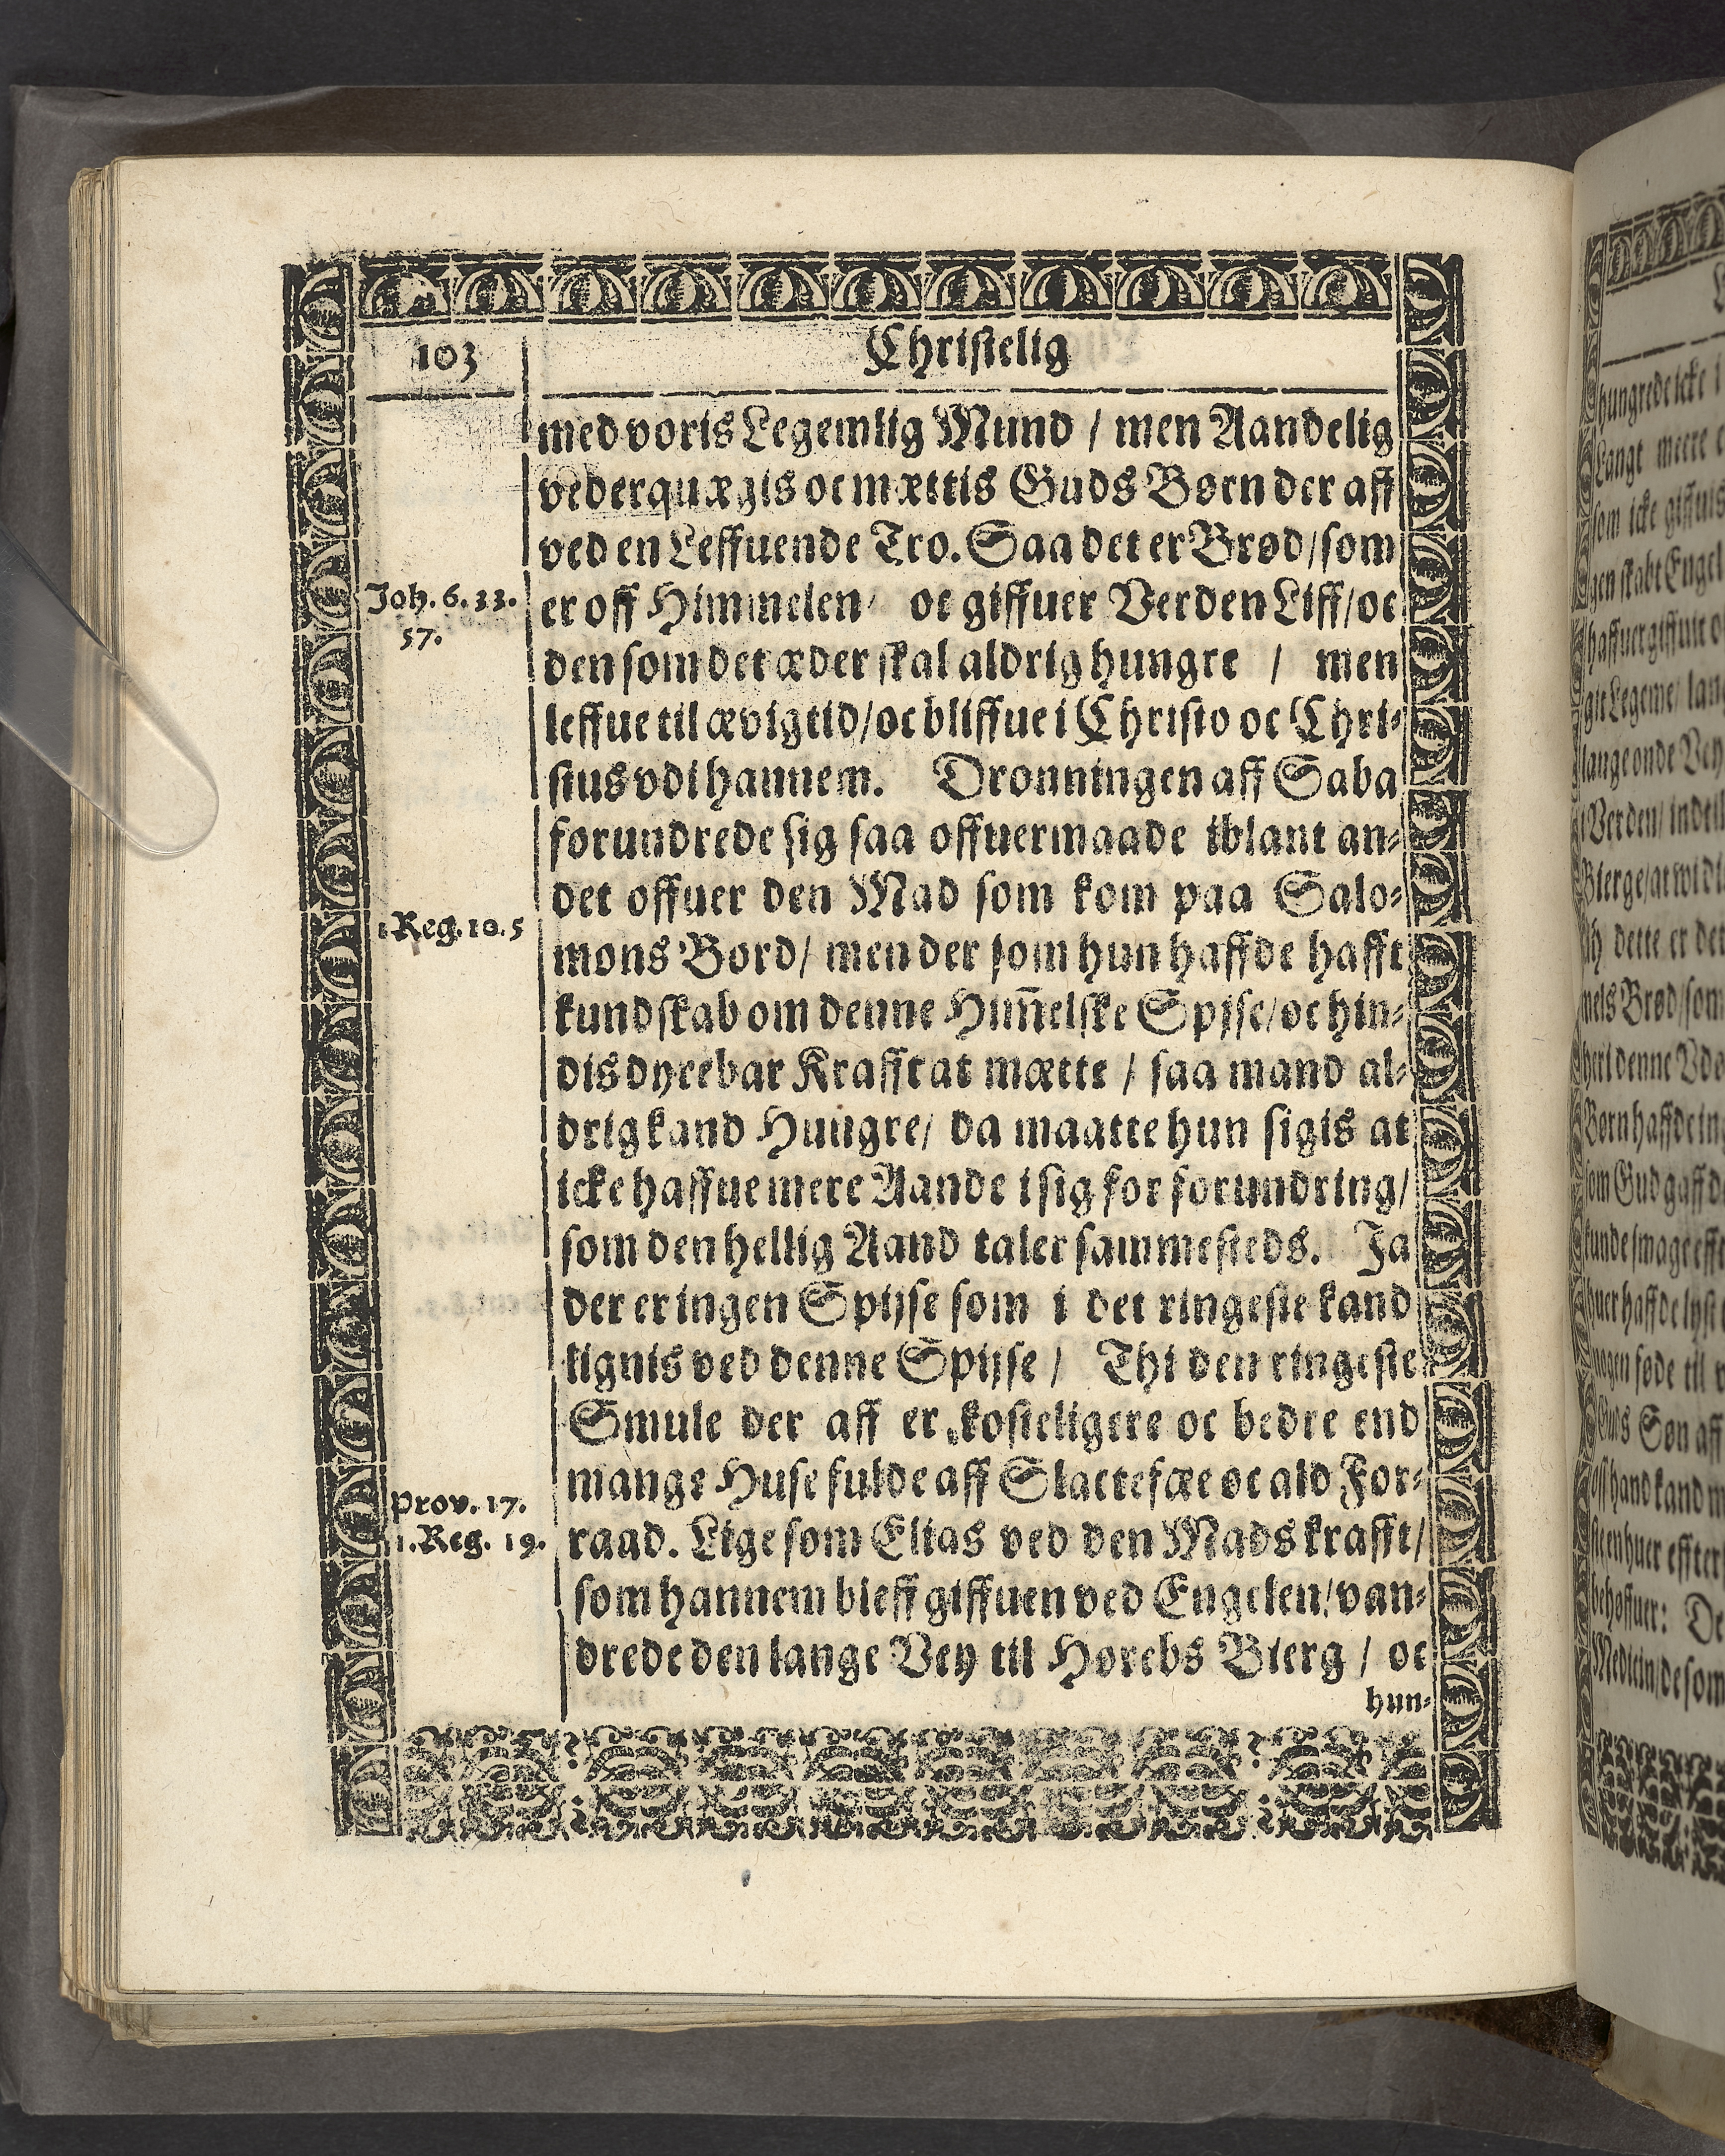 103
Christelig
med voris Legemlig Mund / men Aandelig
vederquægis oc mættis Guds Børn der aff
ved en Leffuende Tro. Saa det er Brød / som
Joh. 6. 33.
57.
er off Himmelen / oc giffuer Verden Liff / oc
den som det æder skal aldrig hungre / men
leffue til ævig tid / oc bliffue i Christo oc Chri-
stus vdi hannem. Dronningen aff Saba
forundrede sig saa offuermaade iblant an-
det offuer den Mad som kom paa Salo-
1 Reg. 10. 5
mons Bord / men der som hun haffde hafft
kundskab om denne Him̄elske Spise / oc hin-
dis dyrebar Krafft at mætte / saa mand al-
drig kand Hungre / da maatte hun sigis at
icke haffue mere Aande i sig for forundring /
som den hellig Aand taler sammesteds. Ja
der er ingen Spijse som i det ringeste kand
lignis ved denne Spijse / Thi den ringeste
Smule der aff er kosteligere oc bedre end
mange Huse fulde aff Slactefæe oc ald For-
Prov. 17.
1. Reg. 19.
raad. Lige som Elias ved den Mads krafft /
som hannem bleff giffuen ved Engelen / van-
drede den lange Vey til Horebs Bierg / oc
hun-